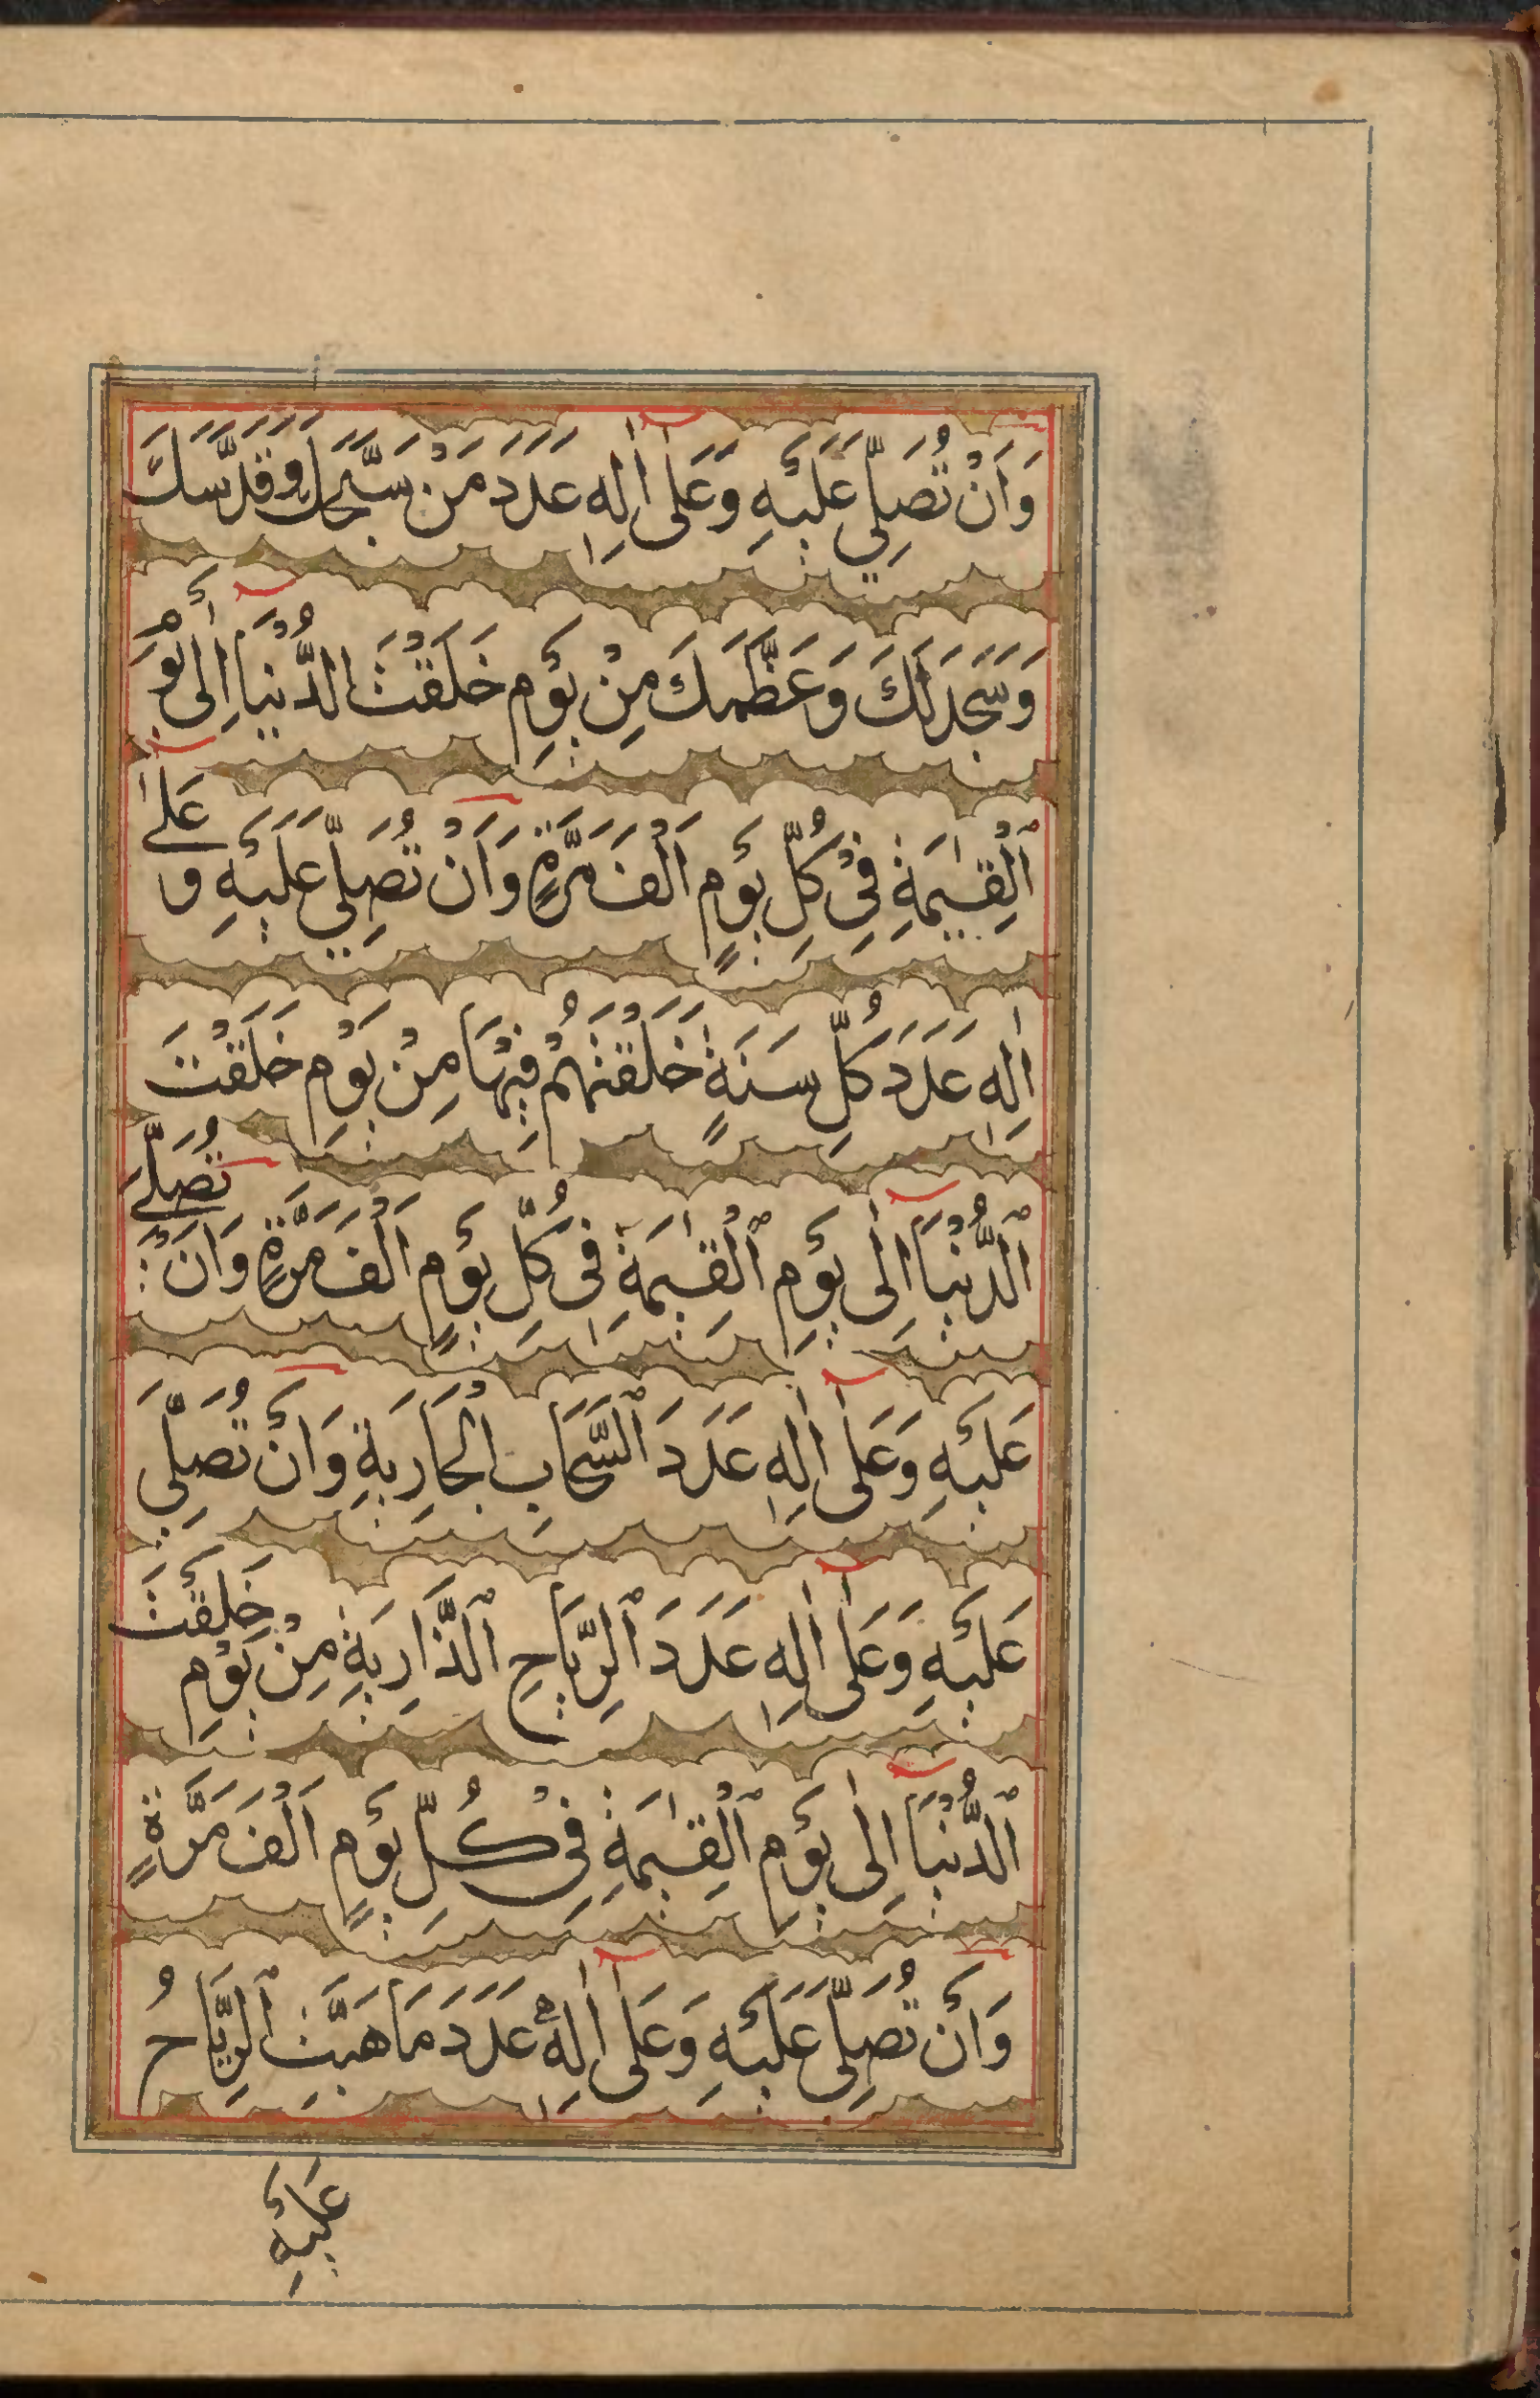 وَاَنْ تُصَلِّيَ عَلَيْهِ وَعَلٰٓى اٰلِهٖ عَدَدَ مَنْ سَبَّحَكَ وَقَدَّسَكَ
وَسَجَدَ لَكَ وَعَظَّمَكَ مِنْ يَوْمِ خَلَقْتَ الدُّنْيَآ اِلٰى يَوْمِ
ٱلْقِيٰمَةِ فِيْ كُلِّ يَوْمٍ اَلْفَ مَرَّةٍ وَاَنْ تُصَلِّيَ عَلَيْهِ وَعَلٰٓى
اٰلِهٖ عَدَدَ كُلِّ سَنَةٍ خَلَقْتَهُمْ فِيْهَا مِنْ يَوْمِ خَلَقْتَ
ٱلدُّنْيَآ اِلٰى يَوْمِ ٱلْقِيٰمَةِ فِي كُلِّ يَوْمٍ اَلْفَ مَرَّةٍ وَاَنْ تُصَلِّيَ
عَلَيْهِ وَعَلٰٓى اٰلِهٖ عَدَدَ ٱلسَّحَابِ الْجَارِيَةِ وَاَنْ تُصَلِّيَ
عَلَيْهِ وَعَلٰٓى اٰلِهٖ عَدَدَ ٱلرِّيَاحِ ٱلذَّارِيَةِ مِنْ يَوْمِ خَلَقْتَ
ٱلدُّنْيَآ اِلٰى يَوْمِ ٱلْقِيٰمَةِ فِيْ كُلِّ يَوْمٍ اَلْفَ مَرَّةٍ
وَاَنْ تُصَلِّيَ عَلَيْهِ وَعَلٰٓى اٰلِهٖ عَدَدَ مَا هَبَّتِ ٱلرِّيَاحُ
عَلَيْهِ